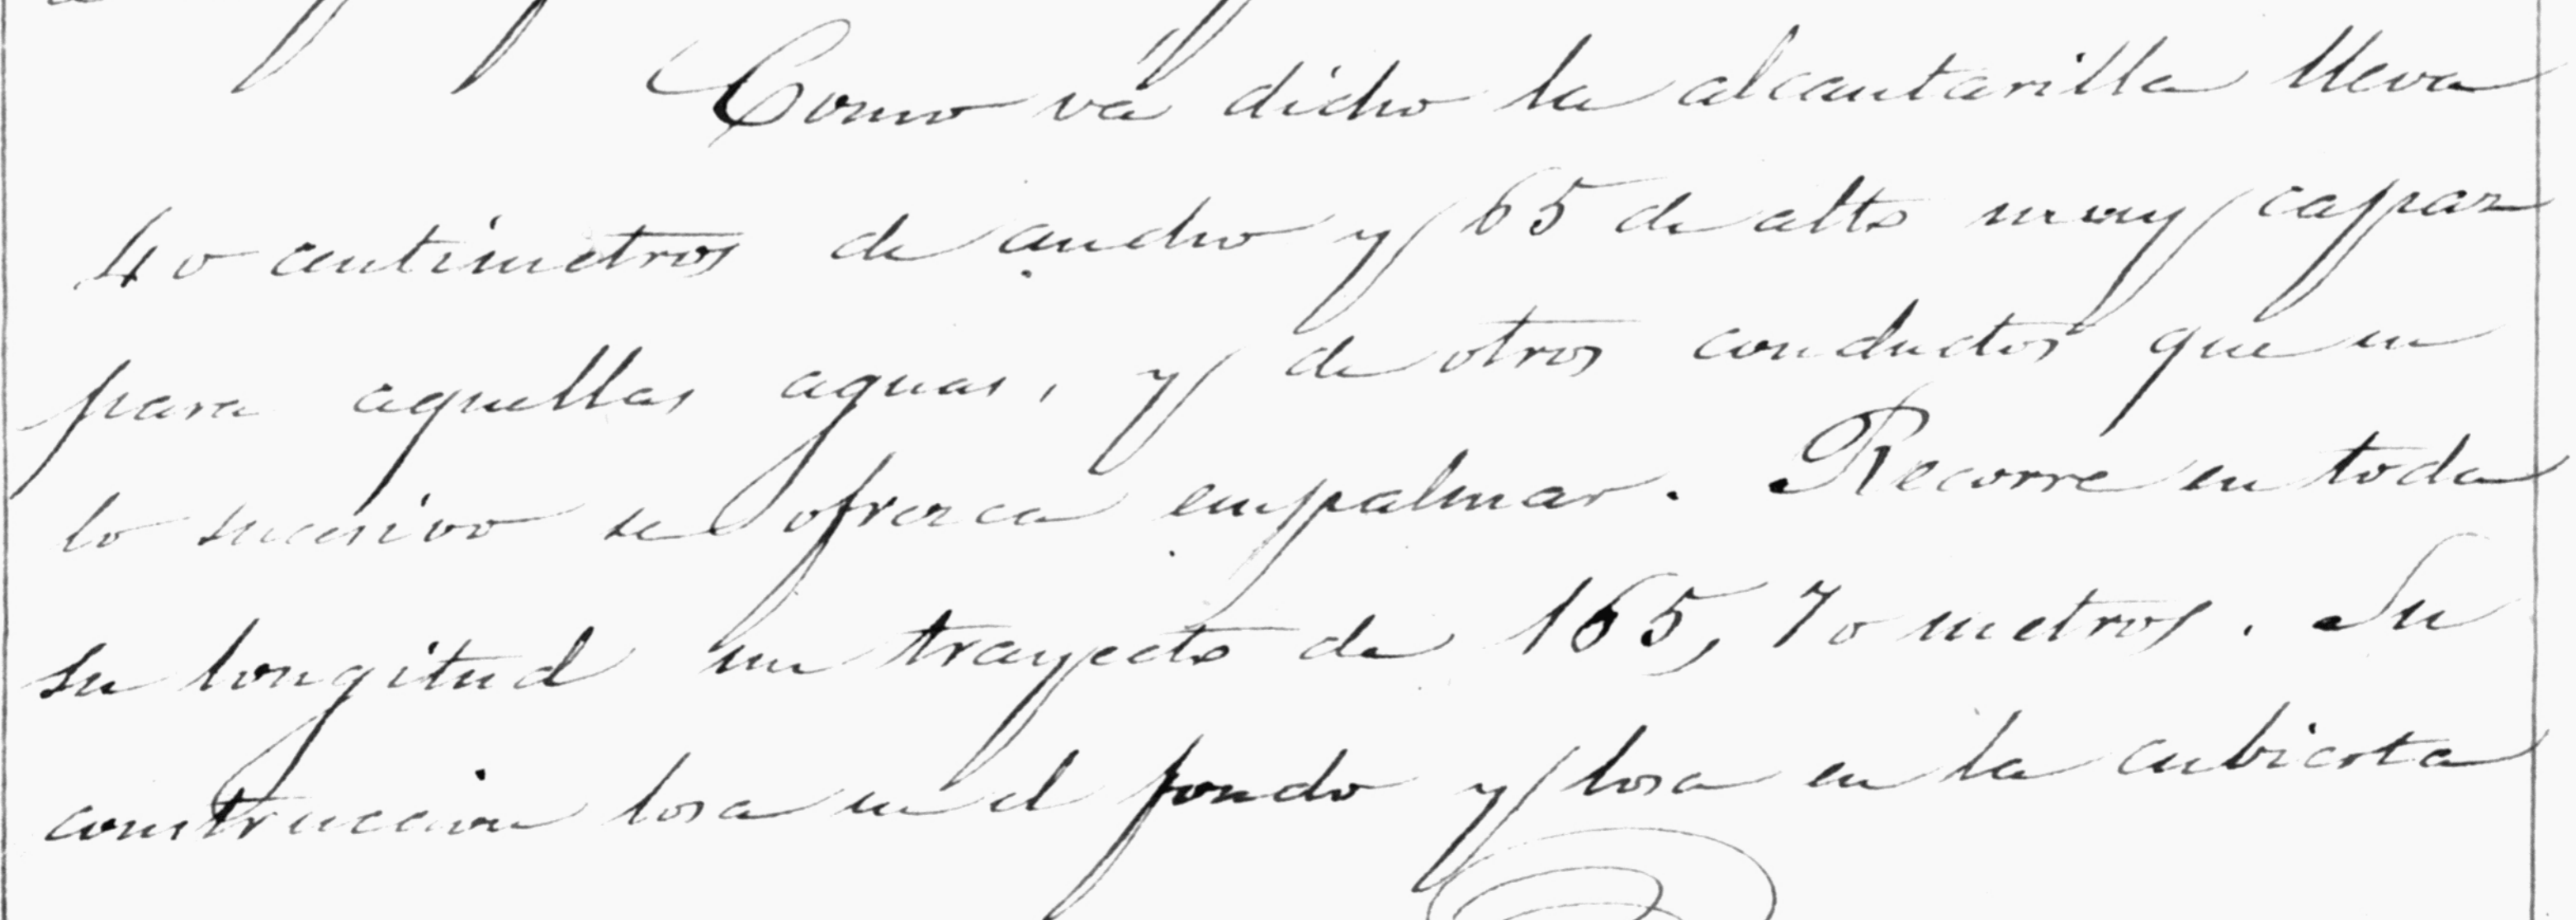 Como va dicho la alcantarilla lleva
40 centimetros de ancho y 65 de alto muy capaz
para aquellas aguas, y de otros conductos que en
lo sucesivo se ofrezca empalmar. Recorre en toda
su longitud un trayecto de 165,70 metros. Su
construccion losa en el fondo y losa en la cubierta